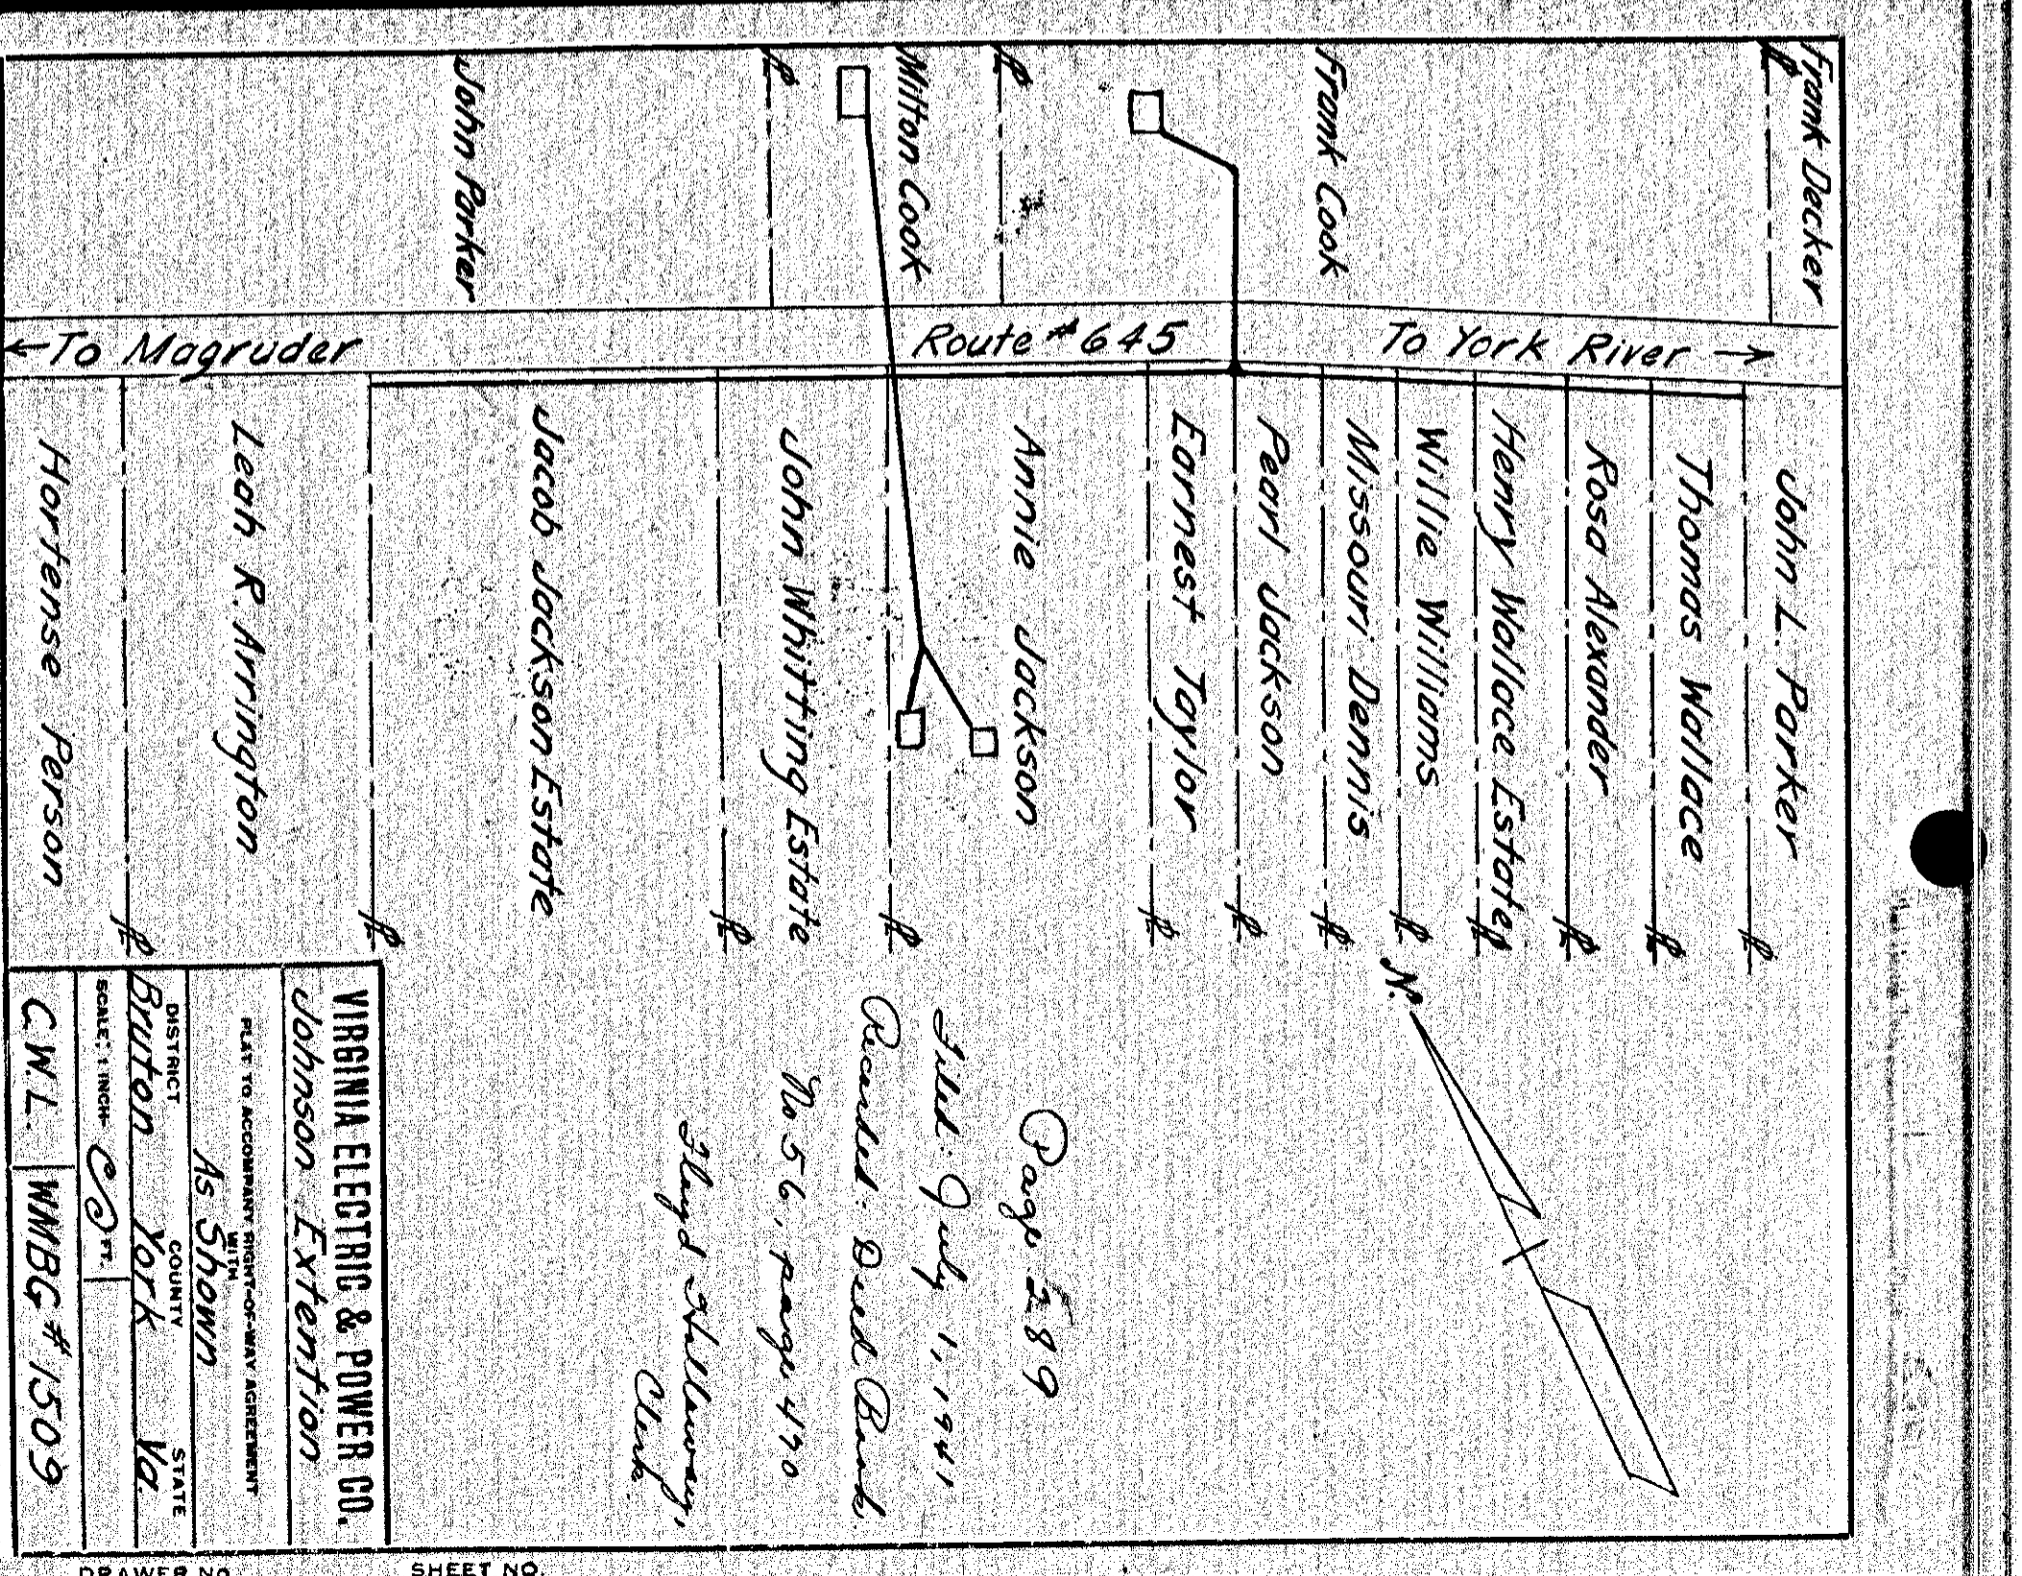 Frank Decker
℄
Frank Cook
℄
Milton Cook
℄
John Parker
← To Magruder
Route #645
To York River →
John L. Parker
℄
Thomas Wallace
℄
Rosa Alexander
℄
Henry Wallace Estate
℄
Willie Williams
℄
Missouri Dennis
℄
Pearl Jackson
℄
Earnest Taylor
℄
Annie Jackson
℄
John Whitting Estate
℄
Jacob Jackson Estate
℄
Leah R. Arrington
℄
Hortense Person
N.
Page 289
Filed: July 1, 1941
Recorded: Deed Book
No 56, page 470
Floyd Holloway,
Clerk.
VIRGINIA ELECTRIC & POWER CO.
Johnson Extention
PLAT TO ACCOMPANY RIGHT-OF-WAY AGREEMENT
WITH
As Shown
DISTRICT COUNTY STATE
Bruton York Va.
SCALE: 1 INCH= FT.
C.W.L. WMBG #1509
DRAWER NO.
SHEET NO.